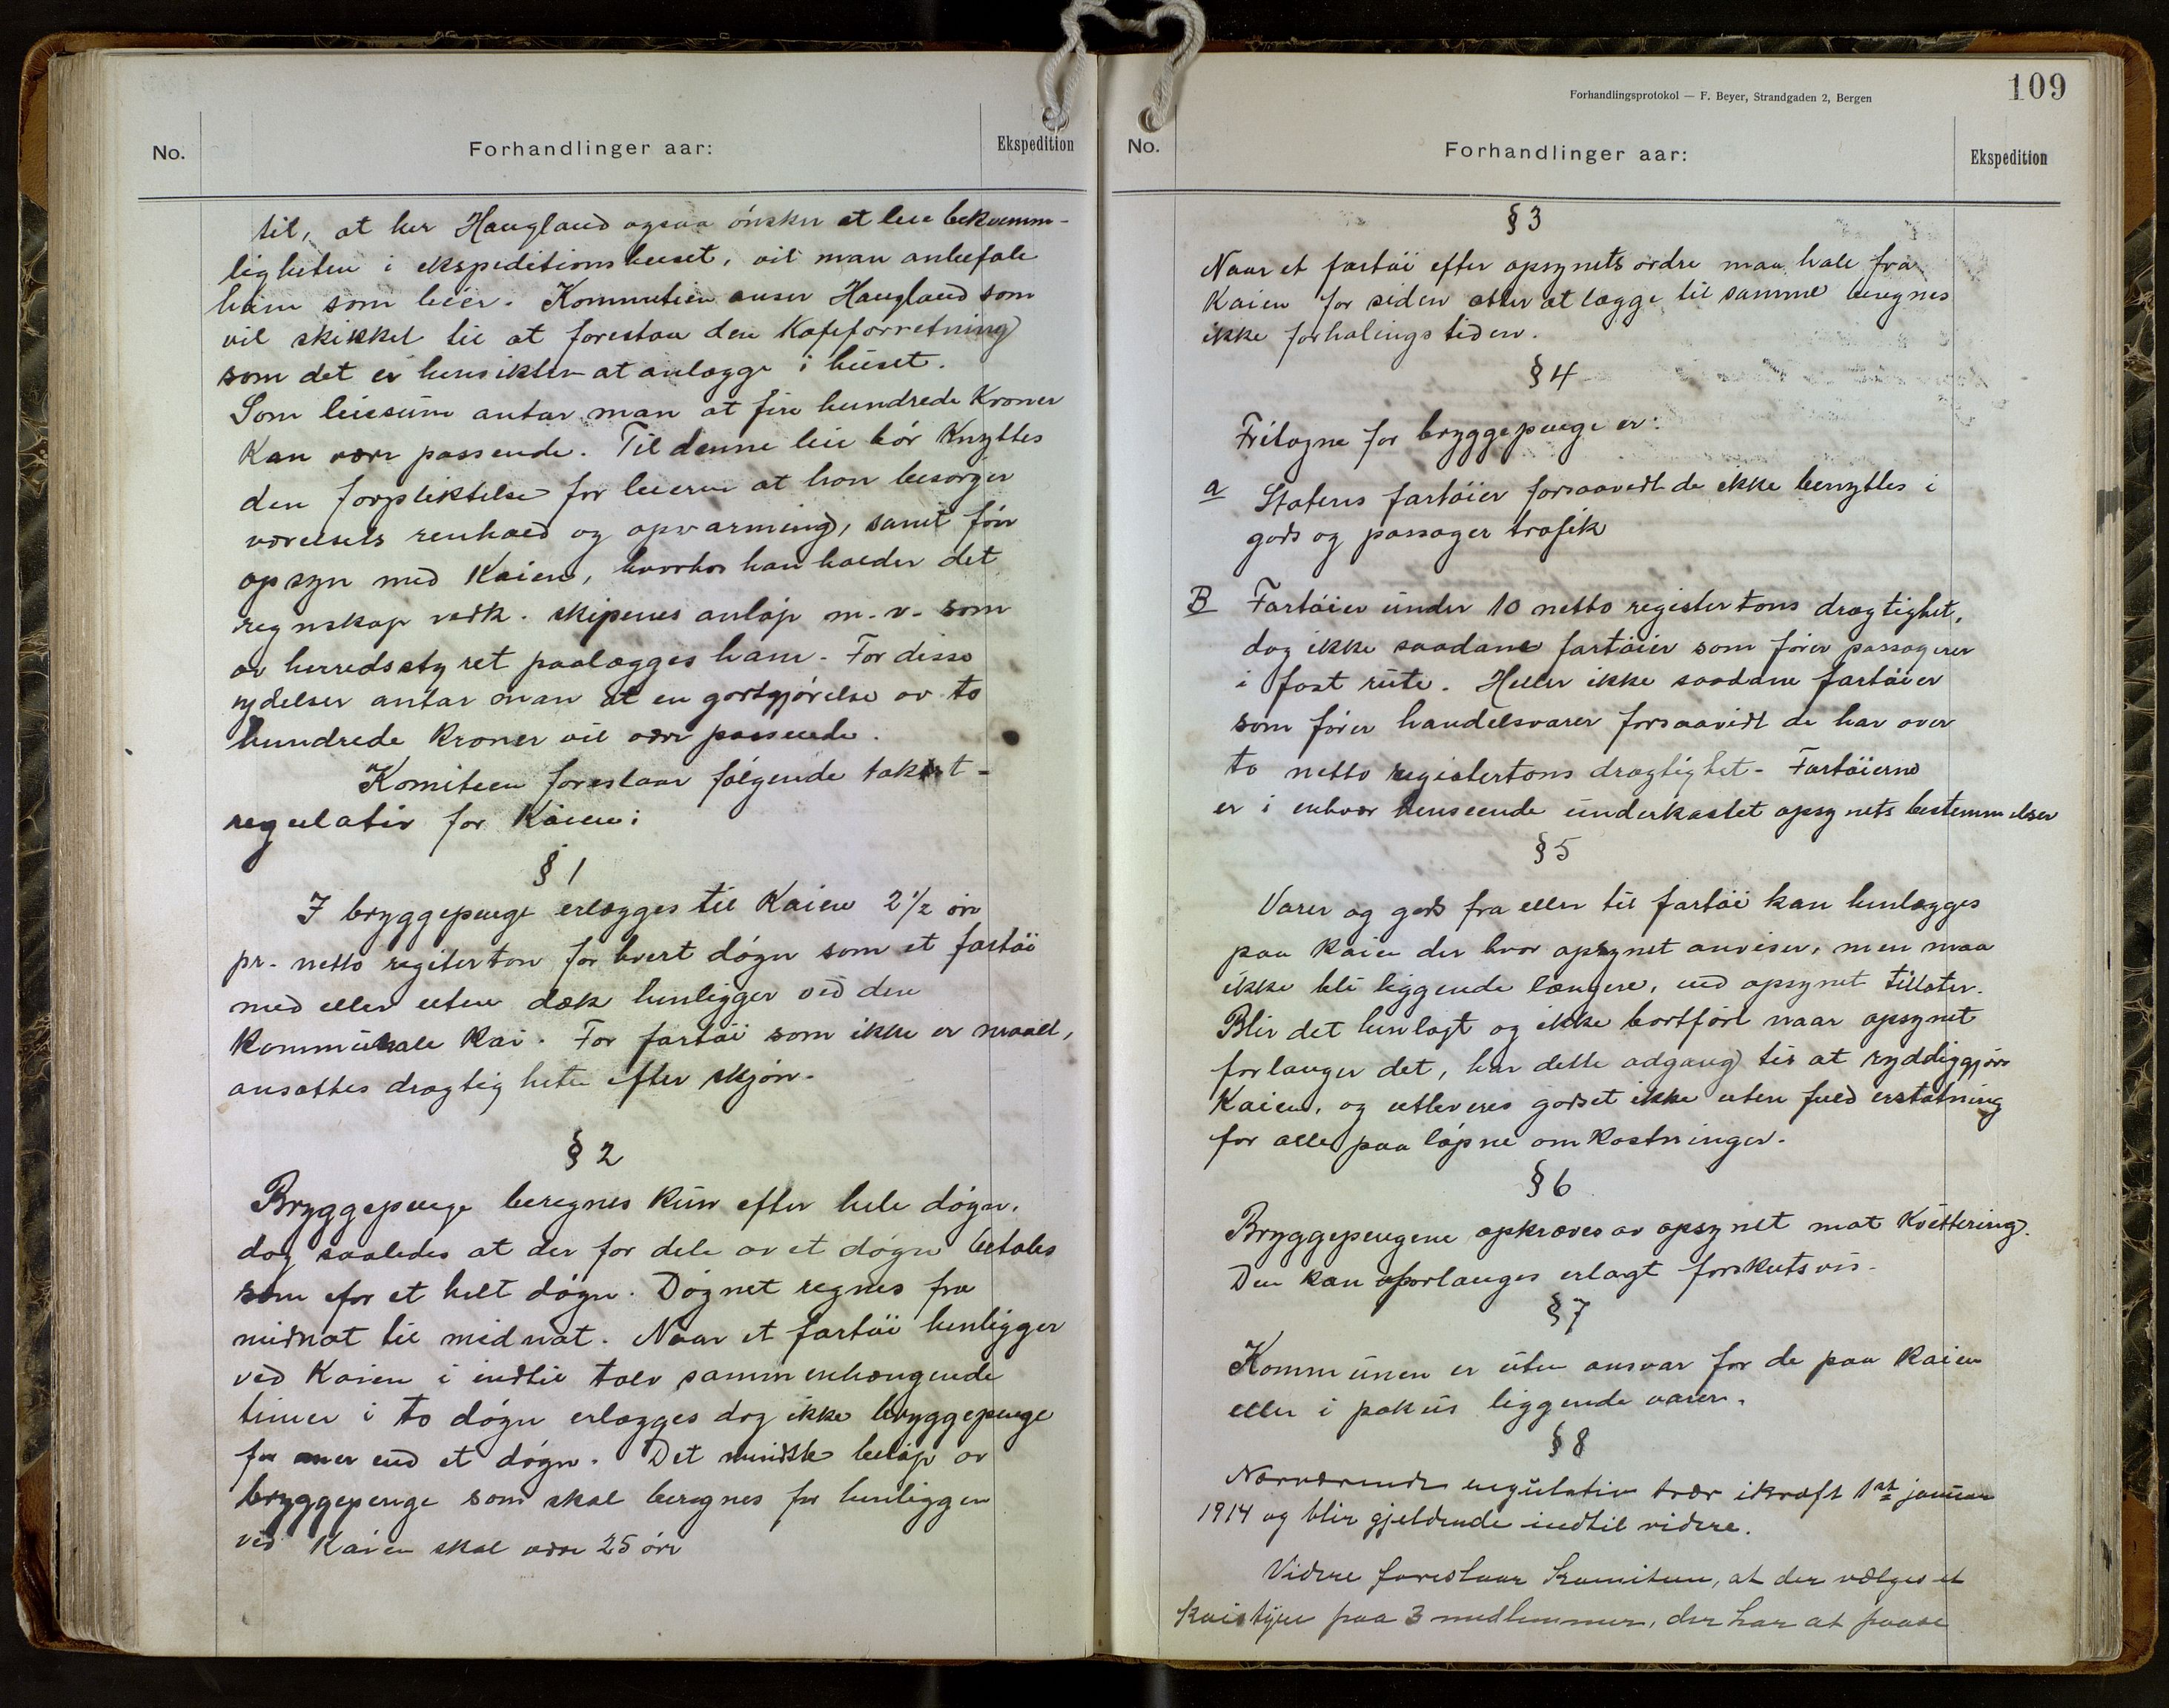 No.
Forhandlinger aar:
Ekspedition
til, at her Haugland ogsaa ønsker at leie bekvemm-
ligheten i ekspeditionshuset, vil man anbefale
ham som leier. Kommiteen anser Haugland som
vil skikket til at forestaa den Kafeforretning
som det er hensikten at anlægge i huset.
Som leiesum antar man at fire hundrede Kroner
Kan være passende. Til denne leie bør Knyttes
den forpliktelse for leieren at han besørger
værelsets renhold og opvarming, samt fører
opsyn med Kaien, hvorhos han holder det
regnskap vedk. skipenes anløp m.v. som
av herredsstyret paalægges ham. For disse
ydelser antar man at en godtgjørelse av to
hundrede Kroner vil være passende.
Komiteen foreslaar følgende takst-
regulativ for Kaien:
§ 1
I bryggepenge erlægges til Kaien 2 1/2 øre
pr. netto regiterton for hvert døgn som et fartøi
med eller uten dæk henligger ved den
Kommunale Kai. For fartøi som ikke er maalt,
ansættes drægtigheten efter skjøn.
§ 2
Bryggepenge beregnes Kun efter hele døgn,
dog saaledes at der for dele av et døgn betales
som for et helt døgn. Døgnet regnes fra
midnat til midnat. Naar et fartøi henligger
ved Kaien i indtil tolv sammenhængende
timer i to døgn erlægges dog ikke bryggepenge
for mer end et døgn. Det mindste beløp av
bryggepenge som skal beregnes for henliggen
ved Kaien skal være 25 øre
Forhandlingsprotokol — F. Beyer, Strandgaden 2, Bergen
109
No.
Forhandlinger aar:
Ekspedition
§ 3
Naar et fartøi efter opsynets ordre maa hale fra
Kaien for siden atter at lægge til samme beregnes
ikke forhalingstiden.
§ 4
Fritagne for bryggepenge er:
a Statens fartøier forsaavidt de ikke benyttes i
gods og passager trafik
B Fartøier under 10 netto register tons drægtighet,
dog ikke saadane fartøier som fører passagerer
i fast rute. Heller ikke saadane fartøier
som fører handelsvarer forsaavidt de har over
to netto registertons drægtighet. Fartøierne
er i enhver henseende underkastet opsynets bestemmelser
§ 5
Varer og gods fra eller til fartøi kan henlægges
paa Kaien der hvor opsynet anviser, men maa
ikke bli liggende længere, end opsynet tillater.
Blir det henlagt og ikke bortført naar opsynet
forlanger det, har dette adgang til at ryddiggjøre
Kaien, og utleveres godset ikke uten fuld erstatning
for alle paaløpne omkostninger.
§ 6
Bryggepengene opkræves av opsynet mot Kvittering.
Den kan forlanges erlagt forskutsvis.
§ 7
Kommunen er uten ansvar for de paa Kaien
eller i pakus liggende varer.
§ 8
Nærværende regulativ trær ikraft 1st januar
1914 og blir gjeldende indtil videre.
Videre foreslaar Komiteen, at der vælges et
Kaistyre paa 3 medlemmer, der har at paase